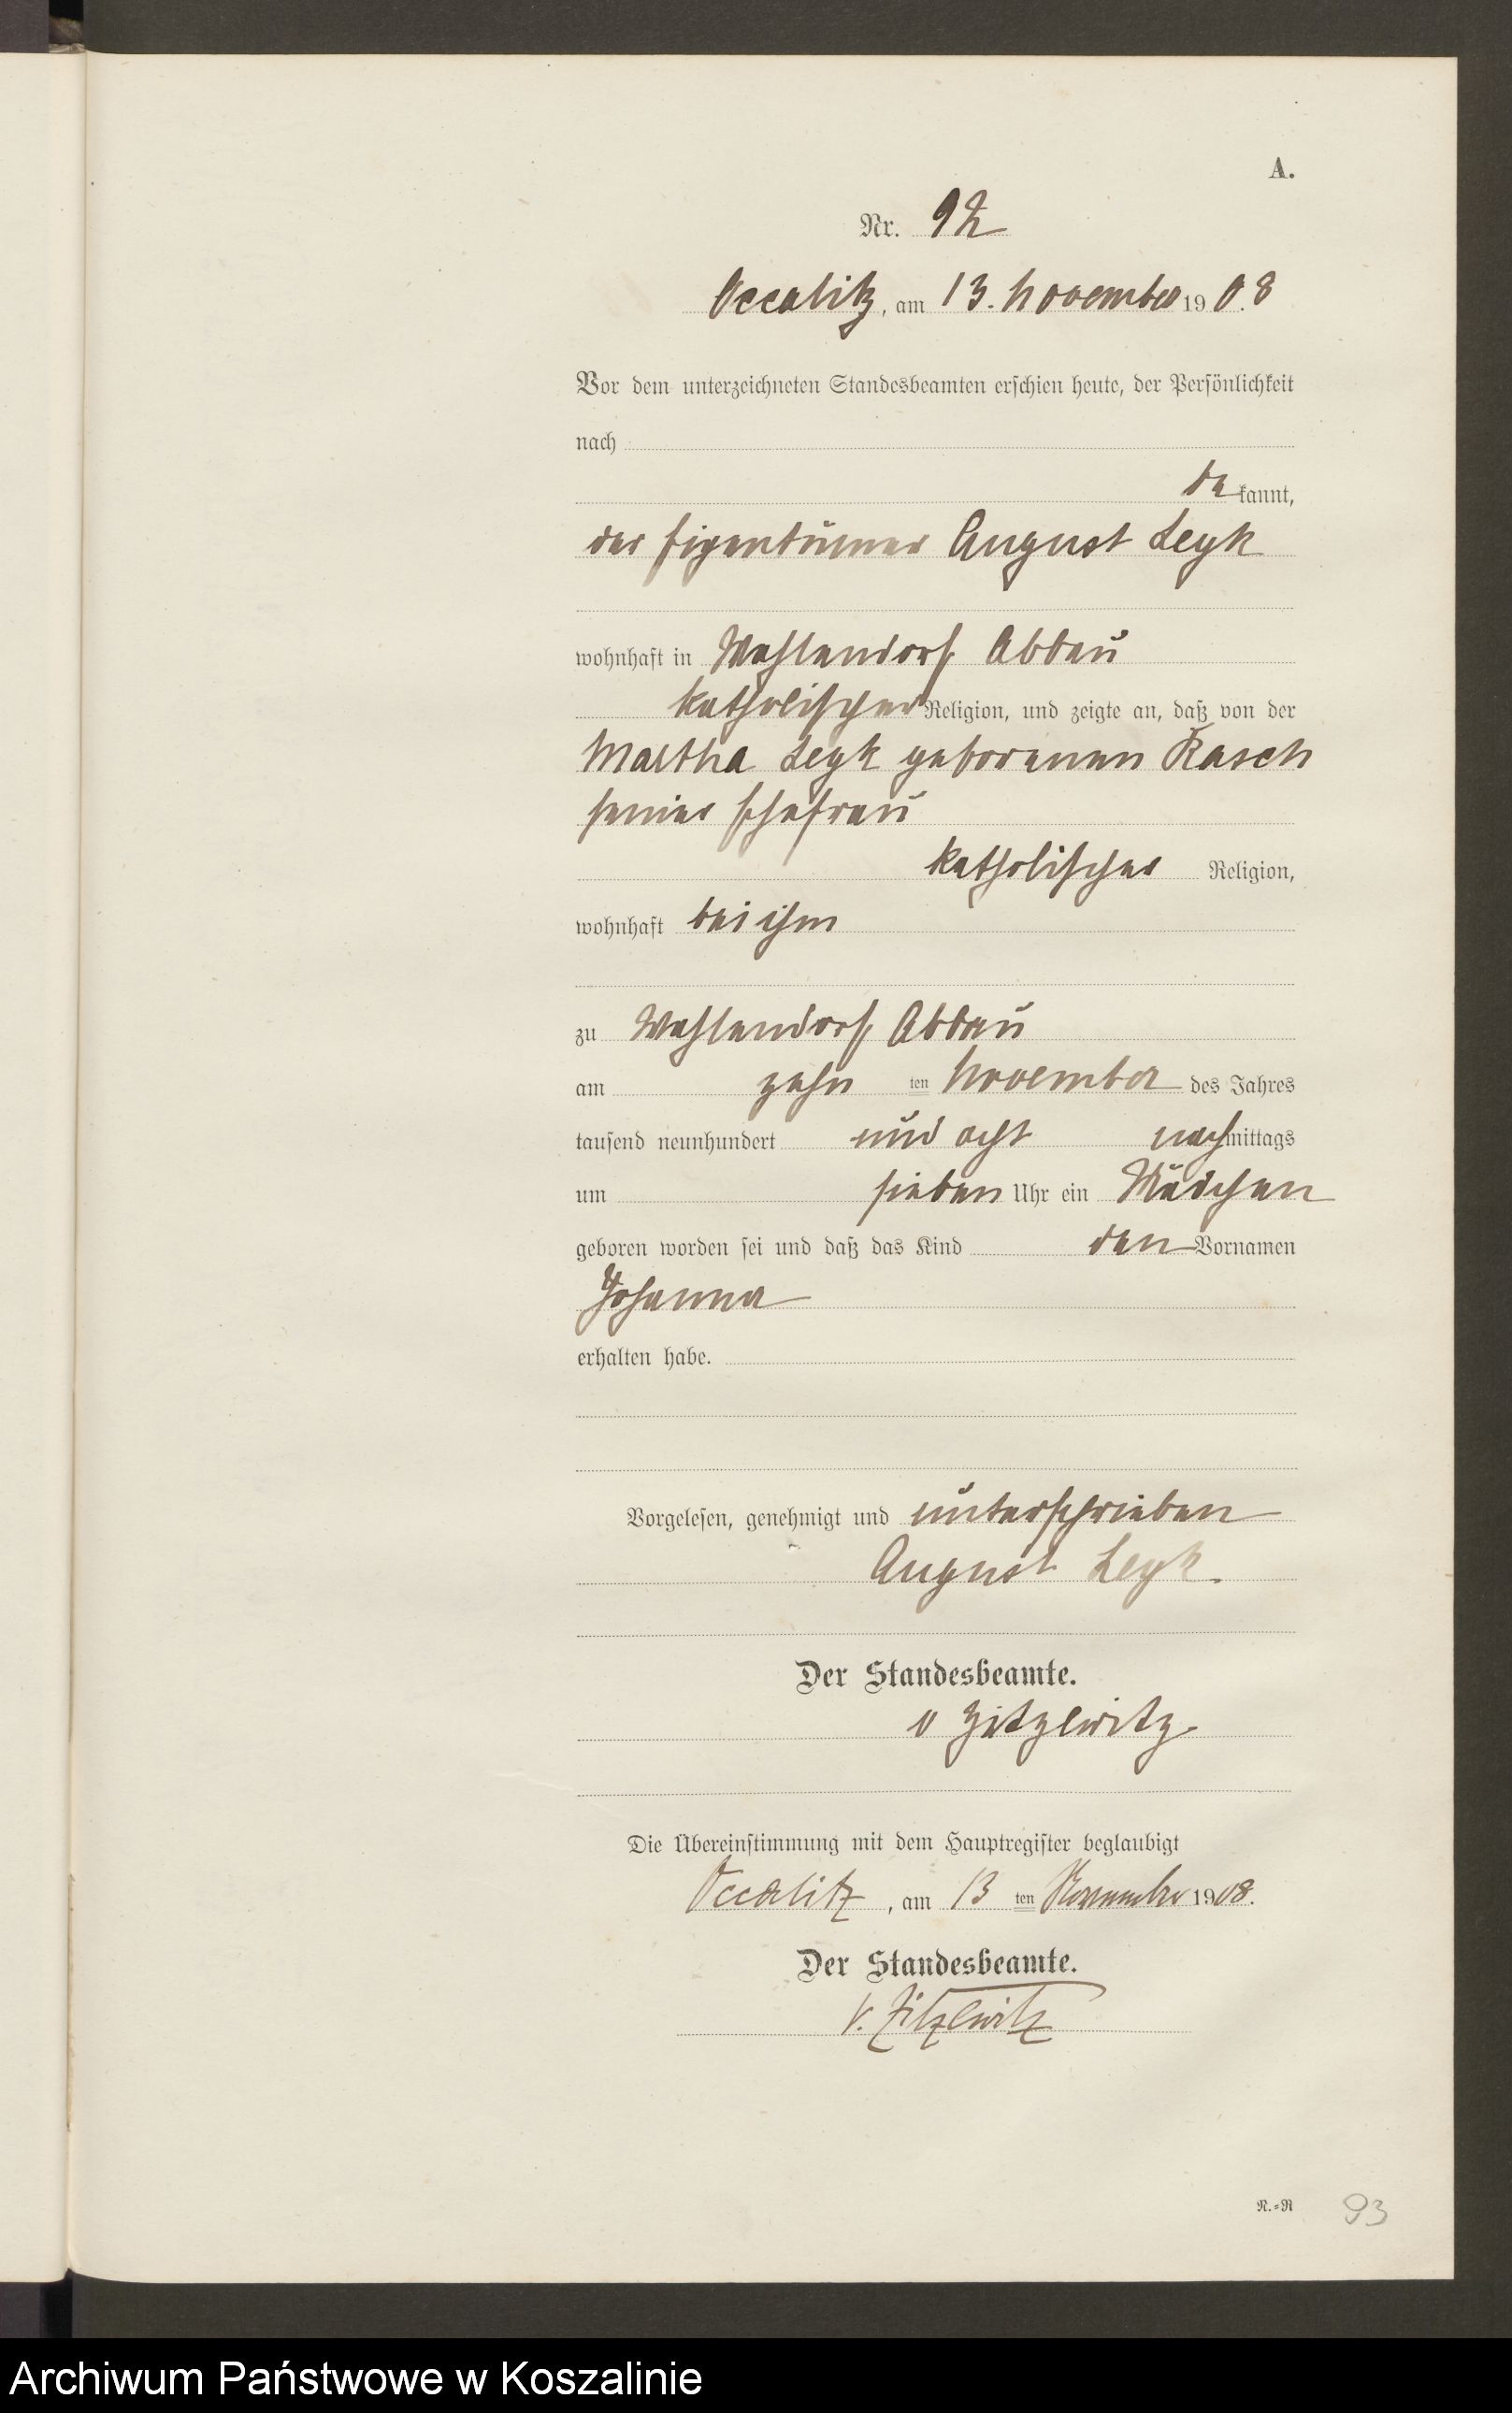 A.
Nr. 92
Occalitz, am 13. November 1908
Vor dem unterzeichneten Standesbeamten erschien heute, der Persönlichkeit
nach
be kannt,
der Eigentümer August Leyk
wohnhaft in Wahlendorf Abbau
katholischer Religion, und zeigte an, daß von der
Martha Leyk geborenen Rasch
seiner Ehefrau
katholischer Religion,
wohnhaft bei ihm
zu Wahlendorf Abbau
am zehn ten November des Jahres
tausend neunhundert und acht nachmittags
um sieben Uhr ein Mädchen
geboren worden sei und daß das Kind den Vornamen
Johanna
erhalten habe.
Vorgelesen, genehmigt und unterschrieben
August Leyk.
Der Standesbeamte.
v Zitzewitz.
Die Übereinstimmung mit dem Hauptregister beglaubigt
Occalitz, am 13 ten November 1908.
Der Standesbeamte.
v. Zitzewitz
R.=R 93
Archiwum Państwowe w Koszalinie